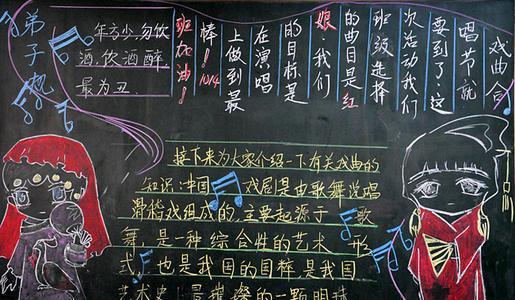 戏曲合
唱节就
要到了,这
次活动我们
班级选择
的曲目是红
娘,我们
的目标是
在演唱
上做到最
棒!10/4
班加油!
弟子规
年方少,勿饮
酒,饮酒醉,
最为丑.
接下来为大家介绍一下有关戏曲的
知识:中国戏剧是由歌舞说唱
滑稽戏组成的,主要起源于歌
舞,是一种综合性的艺术形
式,也是我国的国粹是我国
艺术史上最璀璨的一颗明珠